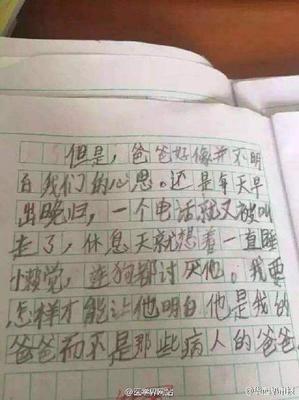 但是，爸爸好像并不明
白我们的心思。还是每天早
出晚归，一个电话就又被叫
走了，休息天就想着一直睡
懒觉，连狗都讨厌他。我要
怎样才能让他明白他是我的
爸爸而不是那些病人的爸爸
@医学界网站